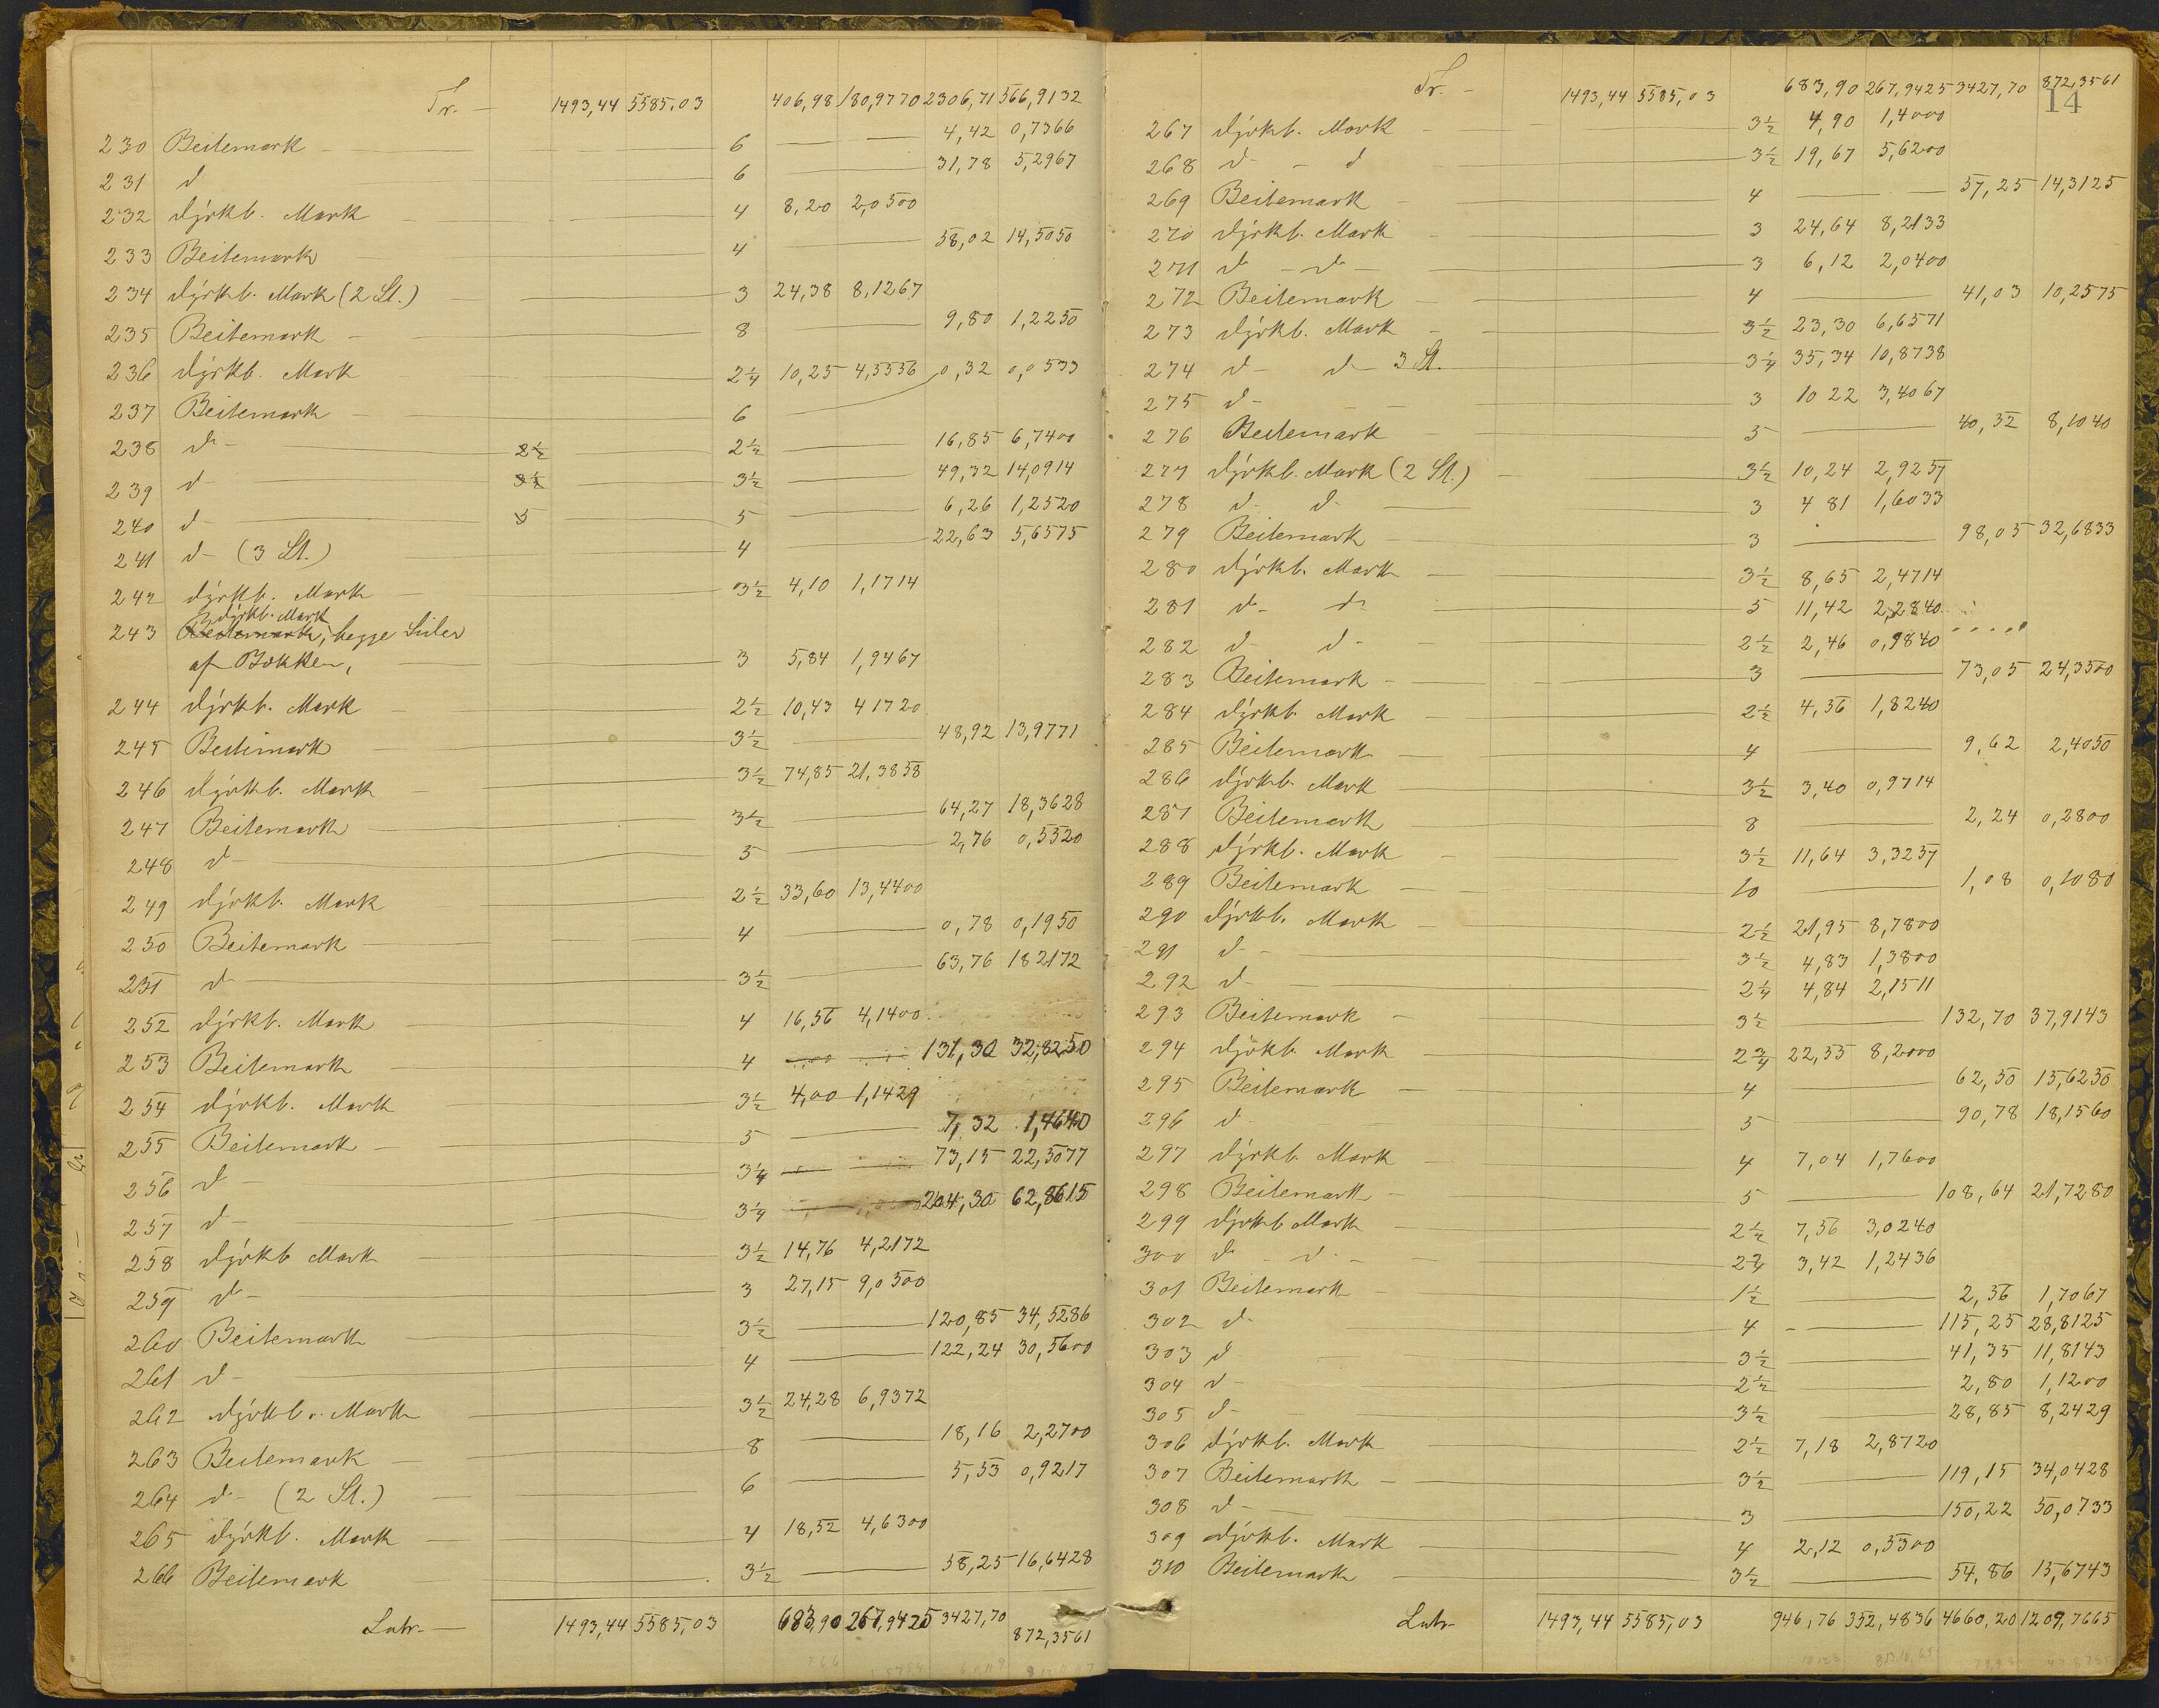 Tr. — 1493,44 5585,03 406,98 180,9770 2306,71 566,9132
230 Beitemark — 6 — 4,42 0,7366
231 d — 6 — 31,78 5,2967
232 dyrkb. Mark — 4 8,20 2,0500
233 Beitemark — 4 — 58,02 14,5050
234 dyrkb. Mark (2 St.) — 3 24,38 8,1267
235 Beitemark — 8 — 9,80 1,2250
236 dyrkb. Mark — 2¼ 10,25 4,5556
237 Beitemark — 6 — 0,32 0,0533
238 d — 2½ 2½ — 16,85 6,7400
239 d — 3½ 3½ — 49,32 14,0914
240 d — 5 5 — 6,26 1,2520
241 d — (3 St.) 4 — 22,63 5,6575
242 dyrkb. Mark — 3½ 4,10 1,1714
dyrkb. Mark
243 Beitemark, begge Sider
af Bækken, — 3 5,84 1,9467
244 dyrkb. Mark — 2½ 10,43 4 1720
245 Beitemark — 3½ — 48,92 13,9771
246 dyrkb. Mark — 3½ 74,85 21,3858
247 Beitemark — 3½ — 64,27 18,3628
248 d — 5 — 2,76 0,5520
249 dyrkb. Mark — 2½ 33,60 13,4400
250 Beitemark — 4 — 0,78 0,1950
251 d — 3½ — 63,76 18 2172
252 dyrkb. Mark — 4 16,56 4,1400
253 Beitemark — 4 — 131,30 32,8250
254 dyrkb. Mark — 3½ 4,00 1,1429
255 Beitemark — 5 — 7,32 1,4640
256 d — 3¼ — 73,15 22,5077
257 d — 3¼ — 204,30 62,8615
258 dyrkb Mark — 3½ 14,76 4,2172
259 d — 3 27,15 9,0500
260 Beitemark — 3½ — 120,85 34,5286
261 d — 4 — 122,24 30,5600
262 dyrkb. Mark — 3½ 24,28 6,9372
263 Beitemark — 8 — 18,16 2,2700
264 d — (2 St.) — 6 — 5,53 0,9217
265 dyrkb. Mark — 4 18,52 4,6300
266 Beitemark 3½ — 58,25 16,6428
Latr. — 1493,44 5585,03 683,90 267,9425 3427,70 872,3561
14
Tr. — 1493,44 5585,03 683,90 267,9425 3427,70 872,3561
267 dyrkb. Mark — 3½ 4,90 1,4000
268 d — d 3½ 19,67 5,6200
269 Beitemark — 4 — 57,25 14,3125
270 dyrkb. Mark — 3 24,64 8,2133
271 d — d — 3 6,12 2,0400
272 Beitemark — 4 — 41,03 10,2575
273 dyrkb. Mark — 3½ 23,30 6,6571
274 d — d — 3 St. 3¼ 35,34 10,8738
275 d — 3 10 22 3,4067
276 Beitemark — 5 — 40,52 8,1040
277 dyrkb. Mark (2 St.) — 3½ 10,24 2,9257
278 d d — 3 4 81 1,6033
279 Beitemark — 3 — 98,05 32,6833
280 dyrkb. Mark — 3½ 8,65 2,4714
281 d — d 5 11,42 2,2840
282 d d — 2½ 2,46 0,9840
283 Beitemark — 3 — 73,05 24,3500
284 dyrkb. Mark — 2½ 4,56 1,8240
285 Beitemark — 4 — 9,62 2,4050
286 dyrkb. Mark — 3½ 3,40 0,9714
287 Beitemark — 8 — 2,24 0,2800
288 dyrkb. Mark — 3½ 11,64 3,3257
289 Beitemark — 10 — 1,08 0,1080
290 dyrkb. Mark — 2½ 21,95 8,7800
291 d — 3½ 4,83 1,3800
292 d — 2¼ 4,84 2,1511
293 Beitemark — 3½ — 132,70 37,9143
294 dyrkb. Mark — 2¾ 22,55 8,2000
295 Beitemark — 4 — 62,50 15,6250
296 d — 5 — 90,78 18,1560
297 dyrkb. Mark — 4 7,04 1,7600
298 Beitemark — 5 — 108,64 21,7280
299 dyrkb Mark — 2½ 7,56 3,0240
300 d — d — 2¾ 3,42 1,2436
301 Beitemark — 1½ — 2,56 1,7067
302 d — 4 — 115,25 28,8125
303 d — 3½ — 41,35 11,8143
304 d — 2½ — 2,80 1,1200
305 d — 3½ — 28,85 8,2429
306 dyrkb. Mark — 2½ 7,18 2,8720
307 Beitemark — 3½ — 119,15 34,0428
308 d — 3 — 150,22 50,0733
309 dyrkb. Mark — 4 2,12 0,5300
310 Beitemark — 3½ — 54,86 15,6743
Latr. 1493,44 5585,03 946,76 352,4836 4660,20 1209,7665